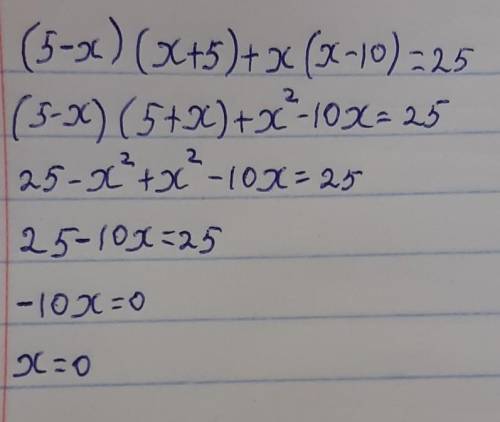 (5-x)(x+5)+x(x-10)=25
(5-x)(5+x)+x²-10x=25
25-x²+x²-10x=25
25-10x=25
-10x=0
x=0